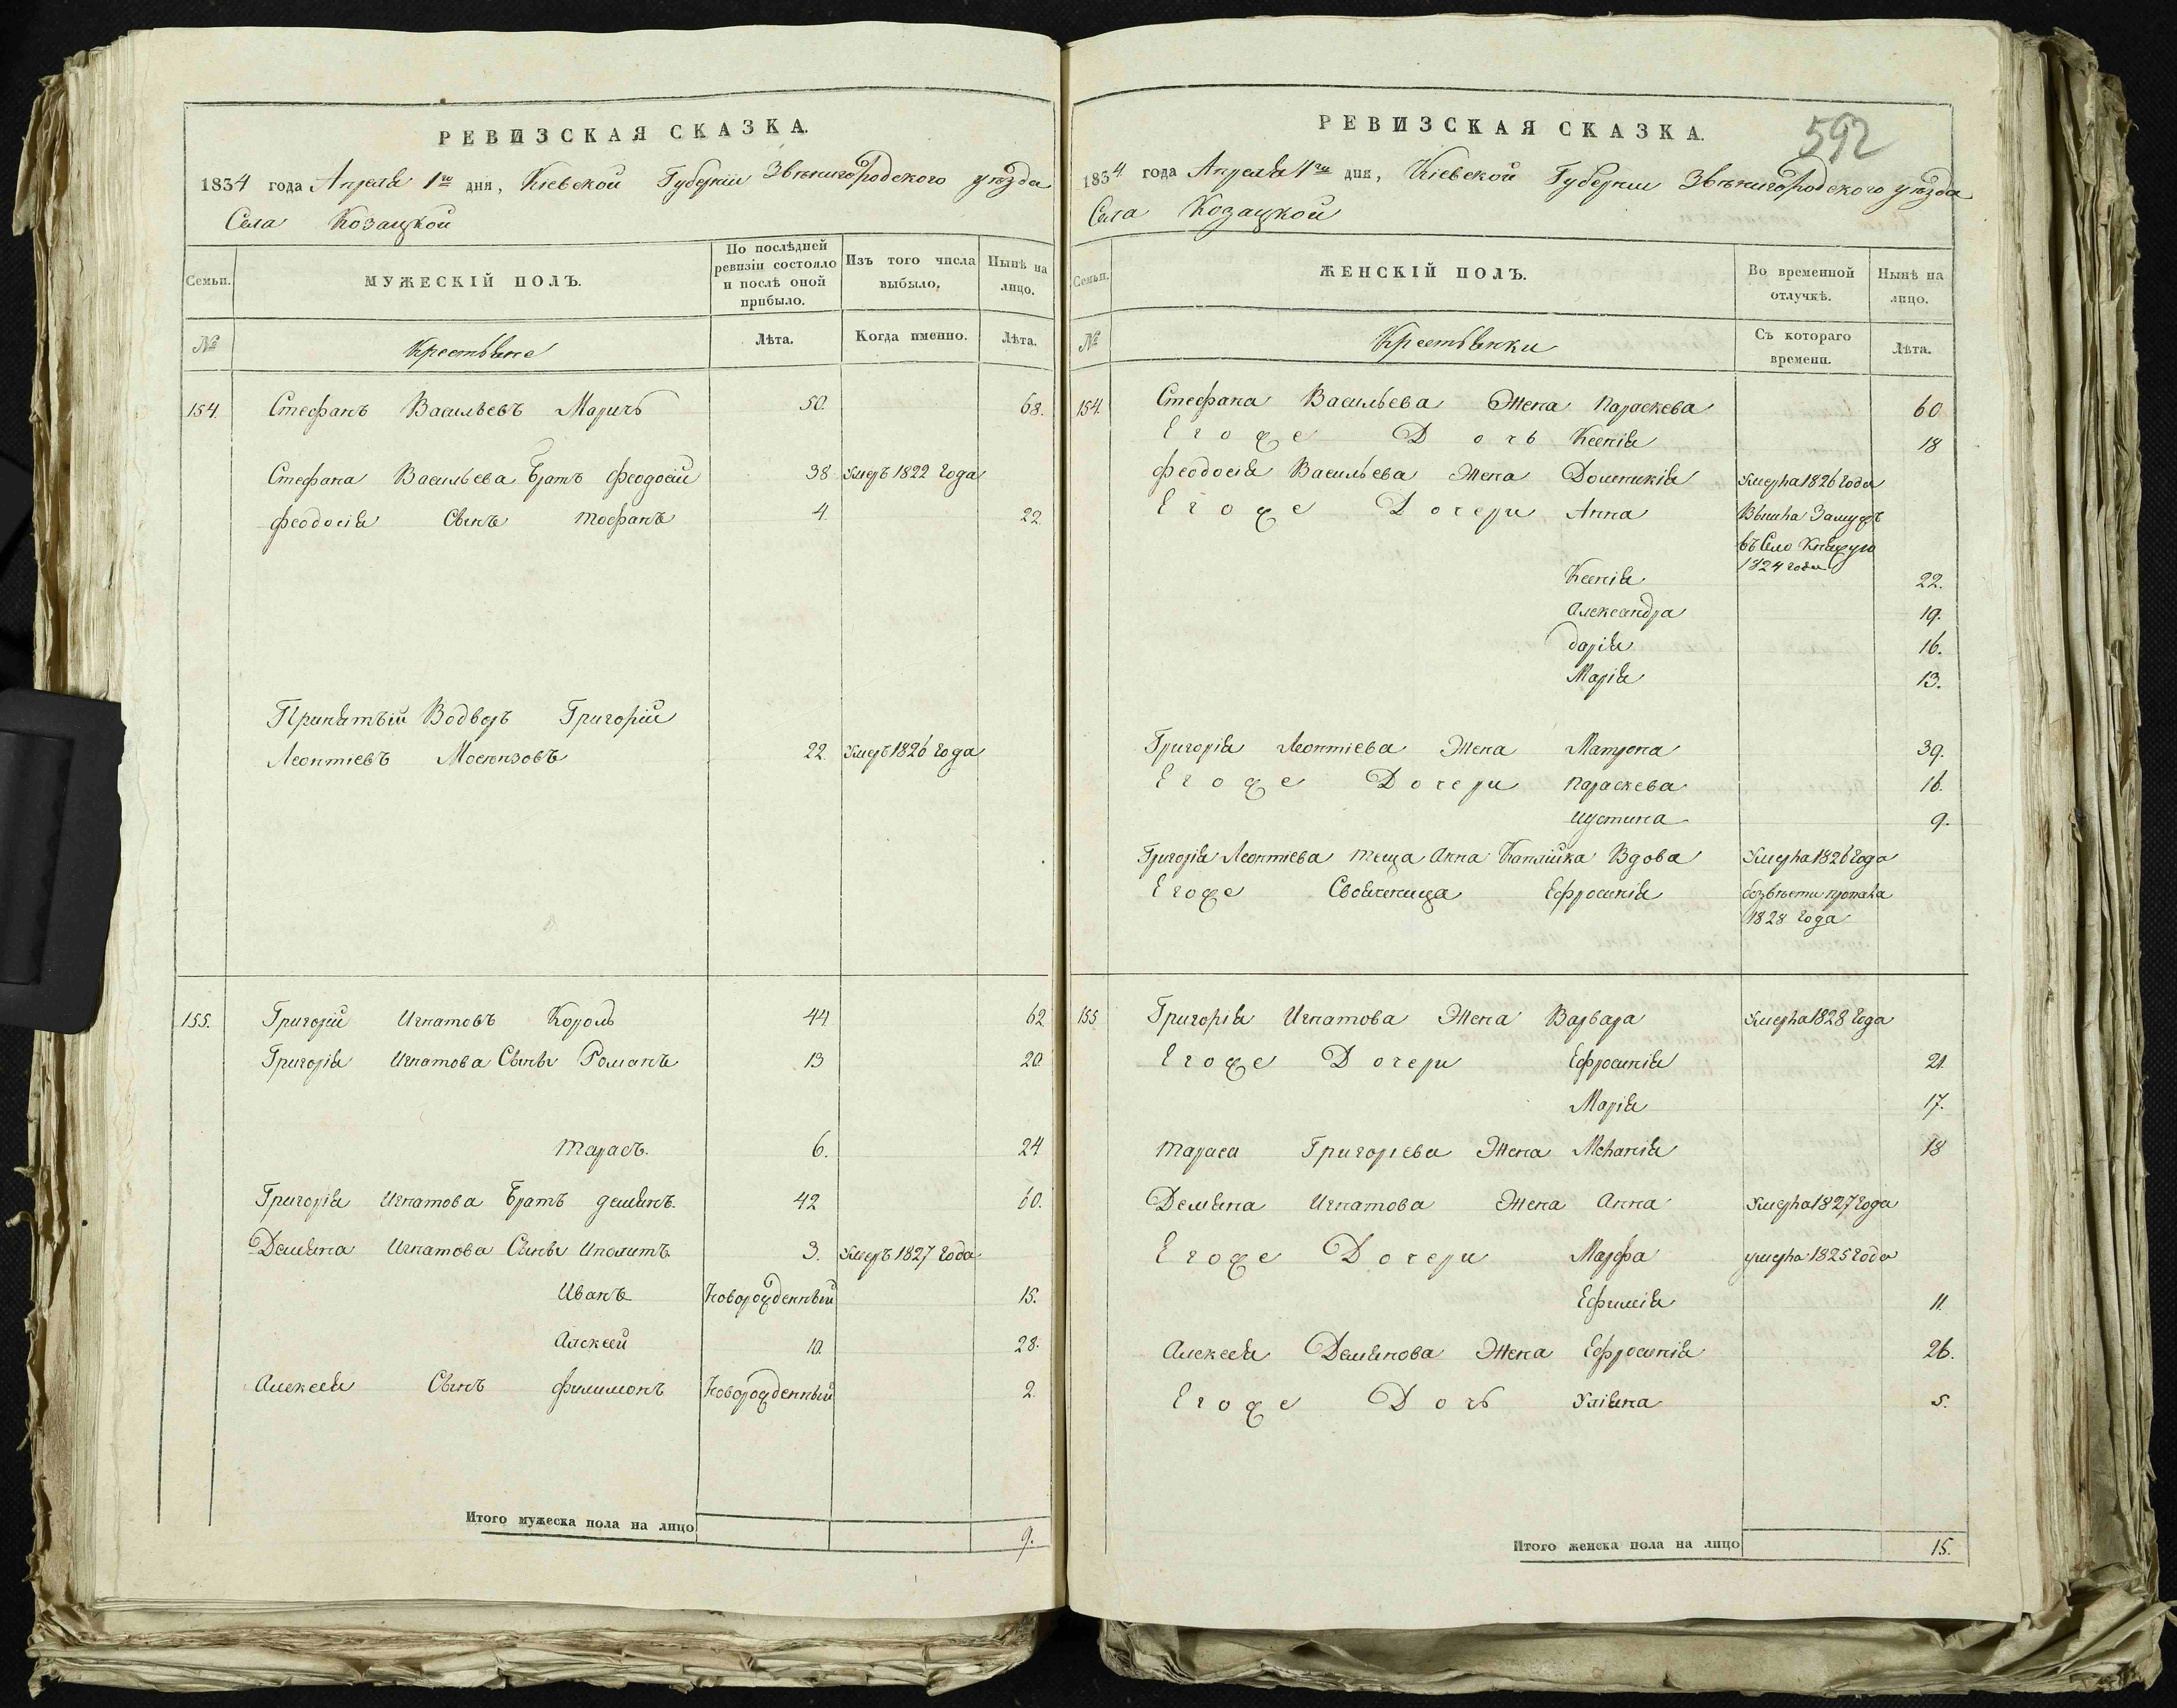 РЕВИЗСКАЯ СКАЗКА.
1834 года Апреля 1го дня, Кіевской Губерніи Звѣнигородского уѣзда
Села Козацкой
Семьи.
МУЖЕСКІЙ ПОЛЪ.
По послѣдней ревизіи состояло и послѣ оной прибыло.
Изъ того числа выбыло.
Нынѣ на лицо.
№
Крестьяне
Лѣта.
Когда именно.
Лѣта.
154. Стефанъ Васильевъ Маричъ 50. 68.
Стефана Васильева Братъ Феодосій 38 умеръ 1822 года
Феодосія Сынъ Тофанъ 4. 22.
Принятый Водворъ Григорій
Леонтіевъ 22. умеръ 1826 года
155. Григорій Игнатовъ Король 44. 62
Григорія Игнатова Сынъ Романъ 13 20.
Тарасъ. 6. 24
Григорія Игнатова Братъ Демянъ. 42 60.
Демяна Игнатова Сынъ Иполитъ 3. умеръ 1827 года
Иванъ Новорожденный 15.
Алексей 10. 28.
Алексея Сынъ Филимонъ Новорожденный 2.
Итого мужеска пола на лицо 9.
592
РЕВИЗСКАЯ СКАЗКА.
1834 года Апреля 1го дня, Кіевской Губерніи Звѣнигородского уѣзда
Села Козацкой
Семьи.
ЖЕНСКІЙ ПОЛЪ.
Во временной отлучкѣ.
Нынѣ на лицо.
№
Крестьянки
Съ котораго времени.
Лѣта.
154. Стефана Васильева Жена Параскева 60
Егоже Дочь Ксенія 18
Феодосія Васильева Жена Домникія умерла 1826 года
Егоже Дочери Анна Вышла Замужъ
въ Село Княжую
1824 года
Ксенія 22.
Александра 19.
Дарія 16.
Марія 13.
Григорія Леонтіева Жена Матрона 39.
Егоже Дочери Параскева 16.
Иустина 9.
Григорія Леонтіева теща Анна Вдова умерла 1826 года
Егоже Своячница Ефросинія безвѣсти пропала
1828 года
155 Григорія Игнатова Жена Варвара умерла 1828 года
Егоже Дочери Ефросинія 21.
Марія 17.
Тараса Григоріева Жена Меланія 18
Демяна Игнатова Жена Анна умерла 1827 года
Егоже Дочери Марфа умерла 1825 года
Ефимія 11.
Алексея Демянова Жена Ефросинія 26.
Егоже Дочь Уліяна 5.
Итого женска пола на лицо 15.